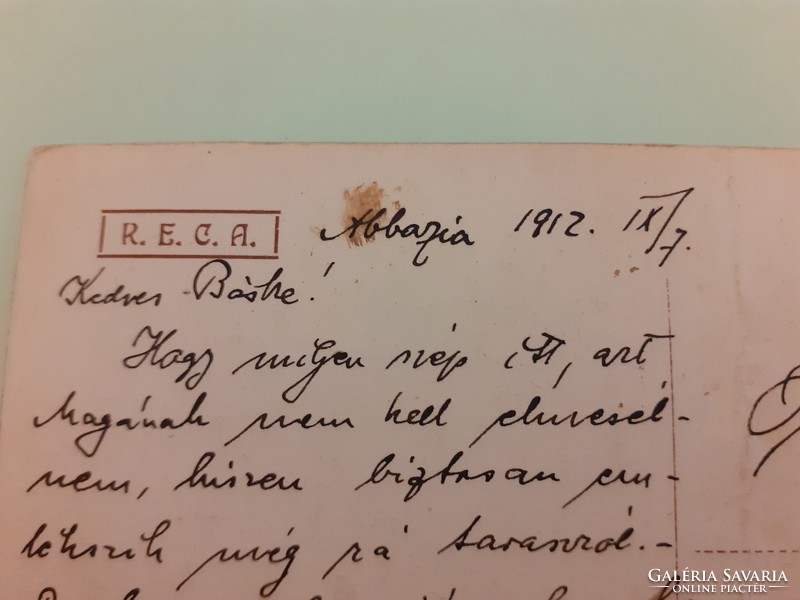 R. E. C. A.
Abbazia 1912. IX/7.
Kedves Böske!
Hogy milyen szép itt, azt
Magának nem kell elmesél-
nem, hiszen biztosan em-
lékszik még rá tavaszról.-
GALÉRIA SAVARIA
ONLINE PIACTÉR